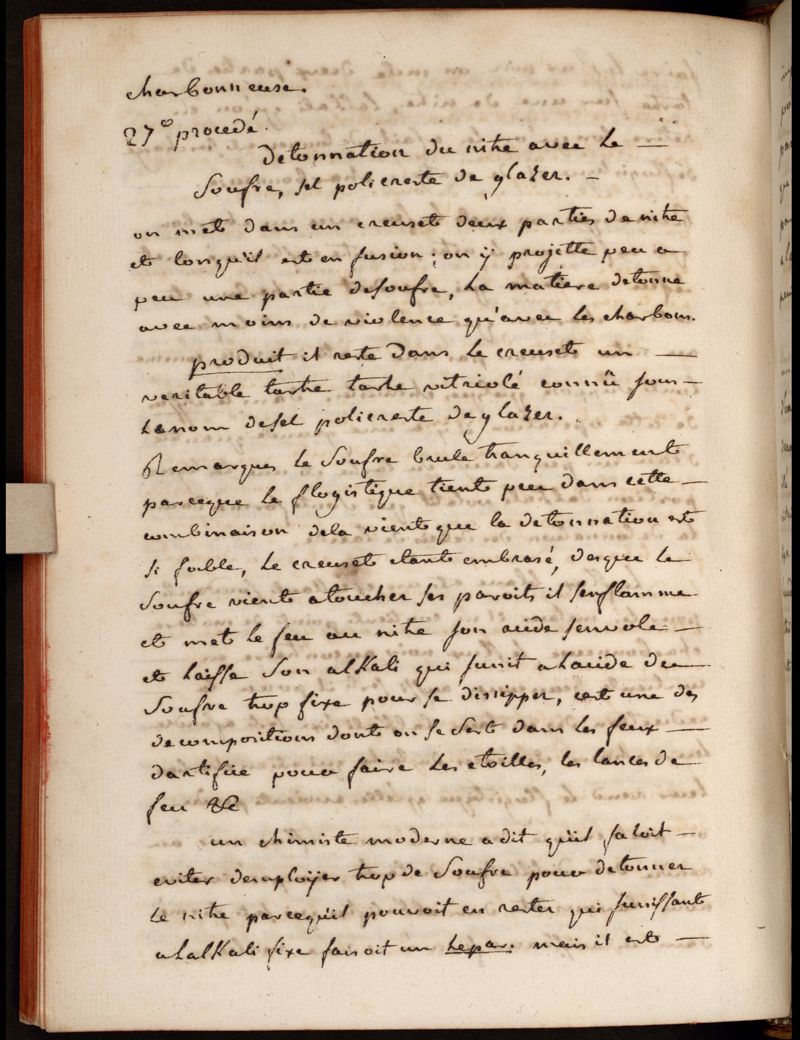 charbonneuse.
27e procedé.
detonnation du nitre avec le —
soufre, sel policreste de glazer. —
on met dans un creuset deux parties de nitre
et lorsqu'il est en fusion; on ÿ projette peu a
peu une partie de soufre, la matiere detonne
avec moins de violence qu'avec les charbons.
produit il reste dans le creuset un —
veritable tartre tartre vitriolé connû sous —
le nom de sel policreste de glazer.
Remarques le soufre brule tranquillement
parceque le flogistique tient peu dans cette —
combinaison dela vient que la detonnation est
si foible, le creuset etant embrasé, desque le
soufre vient a toucher ses parois il senflamme
et met le feu au nitre son acide senvole —
et laisse son alKali qui sunit a lacide du
soufre trop fixe pour se dissipper, cest une des
decompositions dont on se sert dans les feux —
dartifice pour faire les etoilles, les lances de
feu &c
un chimiste moderne a dit qu'il faloit —
eviter demploÿer trop de soufre pour detonner
le nitre parcequ'il pouvoit en rester qui sunissant
a lalKali fixe faisoit un hepar. mais il est —